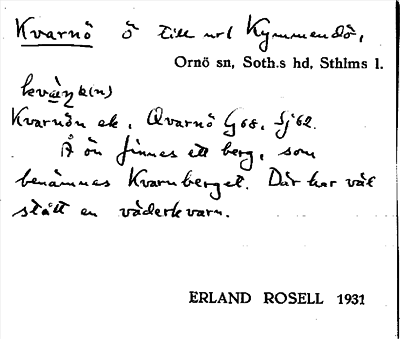 Kvarnö ö till url Kymmendö,
Ornö sn, Soth.s hd, Sthlms l.
Kvarnön ek. Qvarnö G68. Sj62.
Å ön finnes ett berg, som
benämnes Kvarnberget. Där har väl
stått en väderkvarn.
ERLAND ROSELL 1931